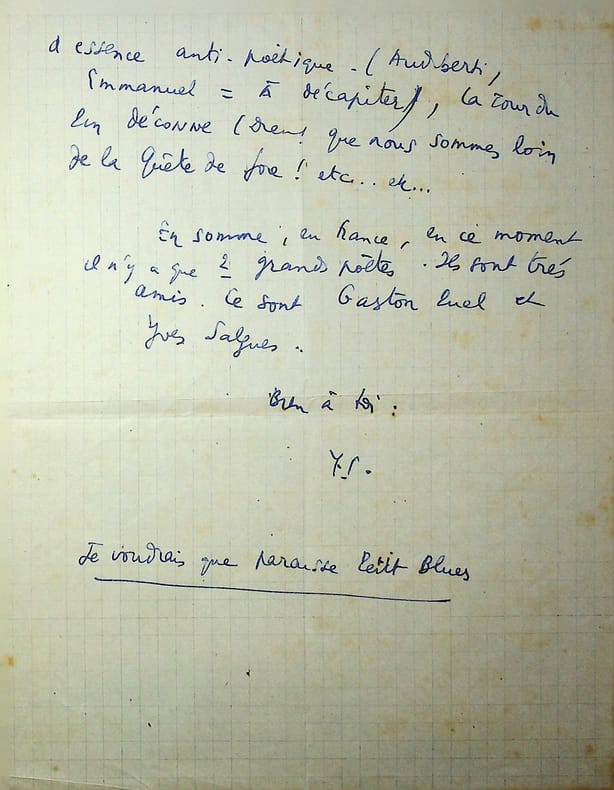 d'essence anti-poétique - (Audiberti,
Emmanuel = à décapiter), La Tour du
Pin déconne (Dieu ! que nous sommes loin
de la Quête de Joie ! etc.. etc...
En somme, en France, en ce moment
il n'y a que 2 grands poètes. Ils sont très
amis. Ce sont Gaston Puel et
Yves Salgues.
Bien à toi.
Y.S.
Je voudrais que paraisse Petit Blues